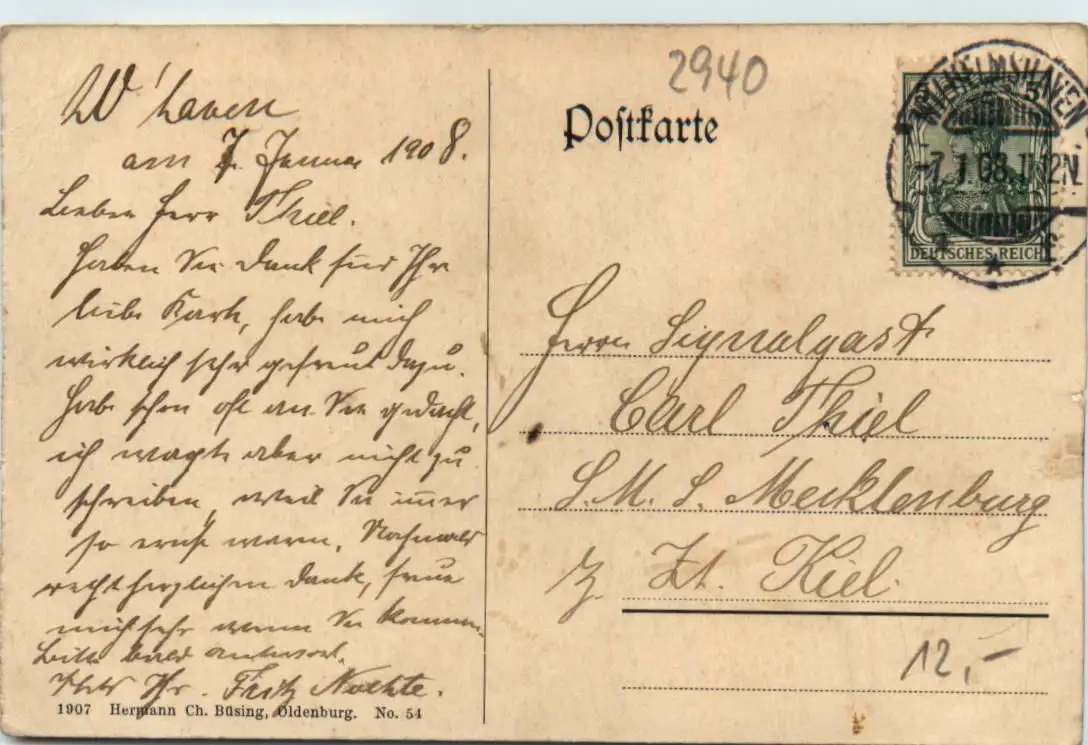 2940
Postkarte
WILHELMSHAVEN
-7.1.08.11-12N.
DEUTSCHES REICH
W'haven
am 7. Januar 1908.
Lieber Herr Thiel.
Haben Sie Dank für Ihre
liebe Karte, habe mich
wirklich sehr gefreut dazu.
Habe schon oft an Sie gedacht,
ich wagte aber nicht zu
schreiben, weil Sie immer
so ernst waren. Nochmals
recht herzlichen Dank, freue
mich sehr wenn Sie kommen.
Bitte bald Antwort.
Ihr. Fritz
1907 Hermann Ch. Büsing, Oldenburg. No. 54
Herrn Signalgast
Carl Thiel
S. M. S. Mecklenburg
z. Zt. Kiel.
12,-